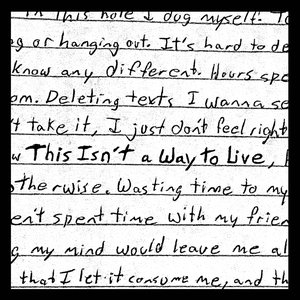 in this hole I dug myself. To
or hanging out. It's hard to de
know any different. Hours spe
om. Deleting texts I wanna se
't take it, I just don't feel right
w This Isn't a Way to Live,
otherwise. Wasting time to my
en't spent time with my frien
g my mind would leave me al
that I let it consume me, and th